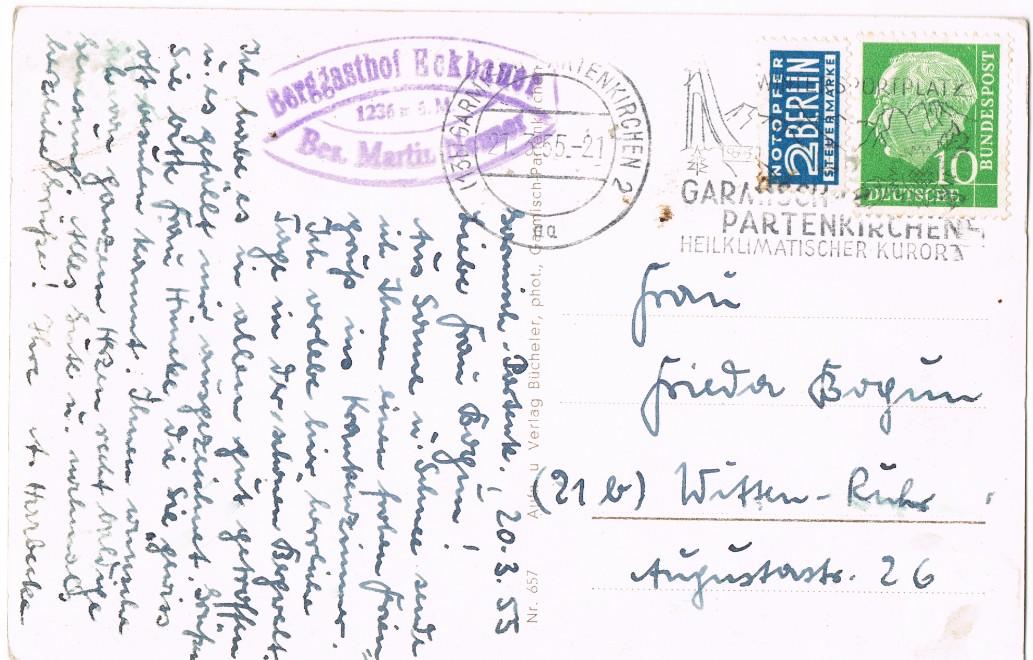 Berggasthof Eckbauer
1236 m ü. M.
Bes. Martin
GARMISCH-PARTENKIRCHEN 2
21.3.55.-21
na
WINTERSPORTPLATZ
GARMISCH-
PARTENKIRCHEN
HEILKLIMATISCHER KURORT
NOTOPFER
2 BERLIN
STEUERMARKE
10
DEUTSCHE
BUNDESPOST
Garmisch-Partenk., 20.3.55
Liebe Frau Bogun!
Aus Sonne u. Schnee sende
ich Ihnen einen frohen Ferien-
gruß ins Krankenzimmer.
Ich verlebe hier herrliche
Tage in der schönen Bergwelt.
Ich habe es in allem gut getroffen
u. es gefällt mir ausgezeichnet. Grüßen
Sie bitte Frau Hüneke, die Sie gewiss
oft besuchen kommt. Ihnen wünsche
ich von ganzem Herzen recht baldige
Genesung, alles Gute u. nochmals
herzliche Grüße! Ihre A. Herrbecke
Nr. 657 Aufn. u Verlag Bücheler, phot., Garmisch-Partenkirchen
Frau
Frieda Bogun
(21 b) Witten-Ruhr
Augustastr. 26